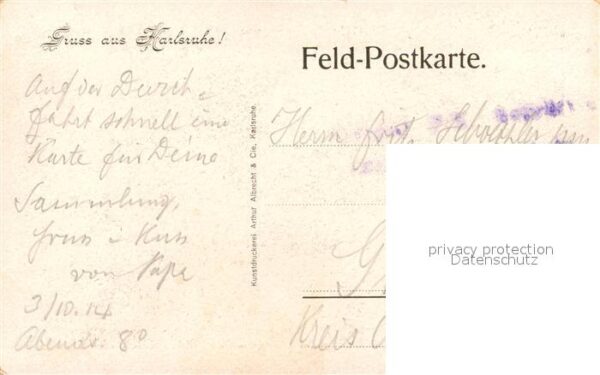 Gruss aus Karlsruhe!
Auf der Durch-
fahrt schnell eine
Karte für Deine
Sammlung,
Gruss u Kuss
von Papa
3/10.14
Abends 8°
Kunstdruckerei Arthur Albrecht & Cie, Karlsruhe.
Feld-Postkarte.
Herrn
Kreis
privacy protection
Datenschutz